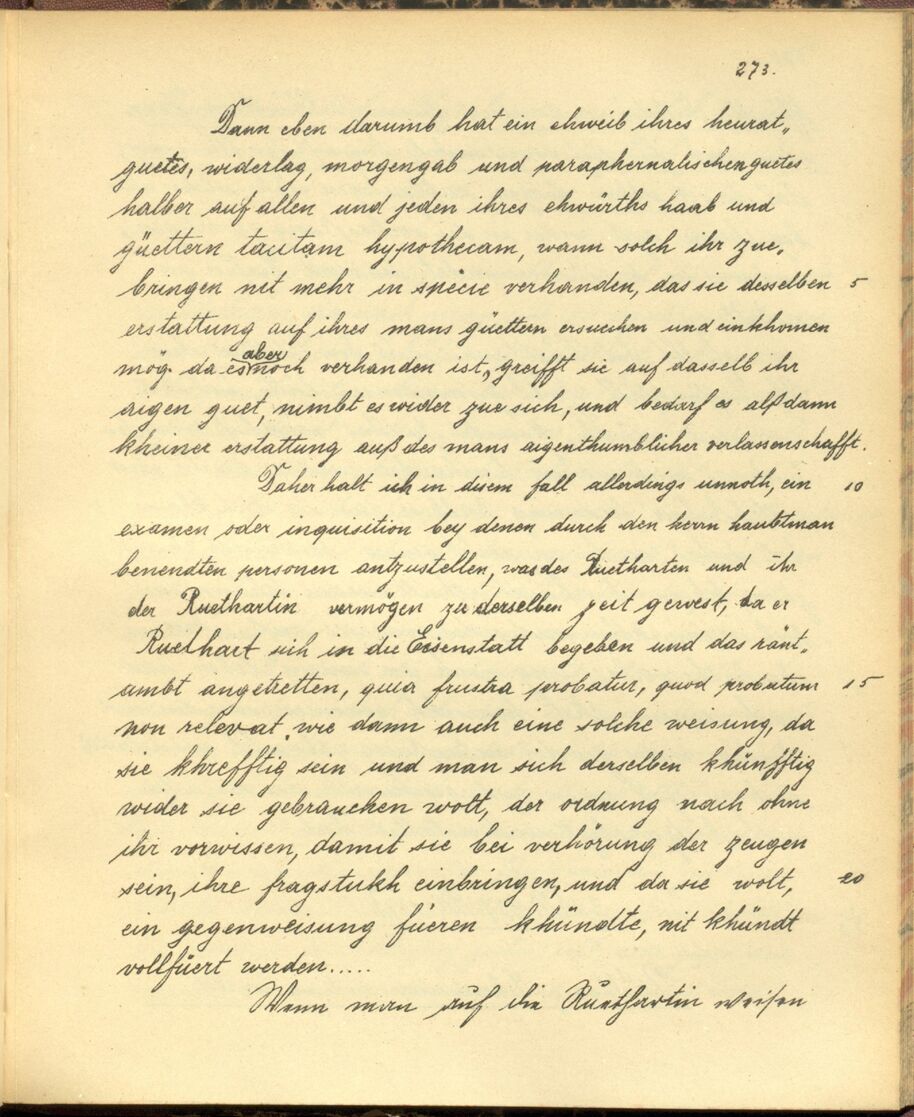 273.
Dann eben darumb hat ein ehweib ihres heurat„
guetes, widerlag, morgengab und paraphernalischen guetes
halber auf allen und jeden ihres ehwürths haab und
güettern tacitam hypothecam, wann solch ihr zue„
bringen nit mehr in specie verhanden, das sie desselben 5
erstattung auf ihres mans güettern ersuechen und einkhomen
mög. da es aber noch verhanden ist, greifft sie auf dasselb ihr
aigen guet, nimbt es wider zue sich, und bedarf es alß dann
kheiner erstattung auß des mans aigenthumblicher verlassenschafft.
Daher halt ich in disem fall allerdings unnoth, ein 10
examen oder inquisition bey denen durch den herrn haubtman
benendten personen antzustellen, was des Ruetharten und ihr
der Ruethartin vermögen zu derselben zeit gewest, da er
Ruethart sich in die Eisenstatt begeben und das ränt„
ambt angetretten, quia frustra probatur, quod probatum 15
non relevat, wie dann auch eine solche weisung, da
sie khrefftig sein und man sich derselben khünfftig
wider sie gebrauchen wolt, der ordnung nach ohne
ihr vorwissen, damit sie bei verhörung der zeugen
sein, ihre fragstukh einbringen, und da sie wolt, 20
ein gegenweisung füeren khündte, nit khündt
vollfüert werden.....
Wenn man auf die Ruethartin weisen